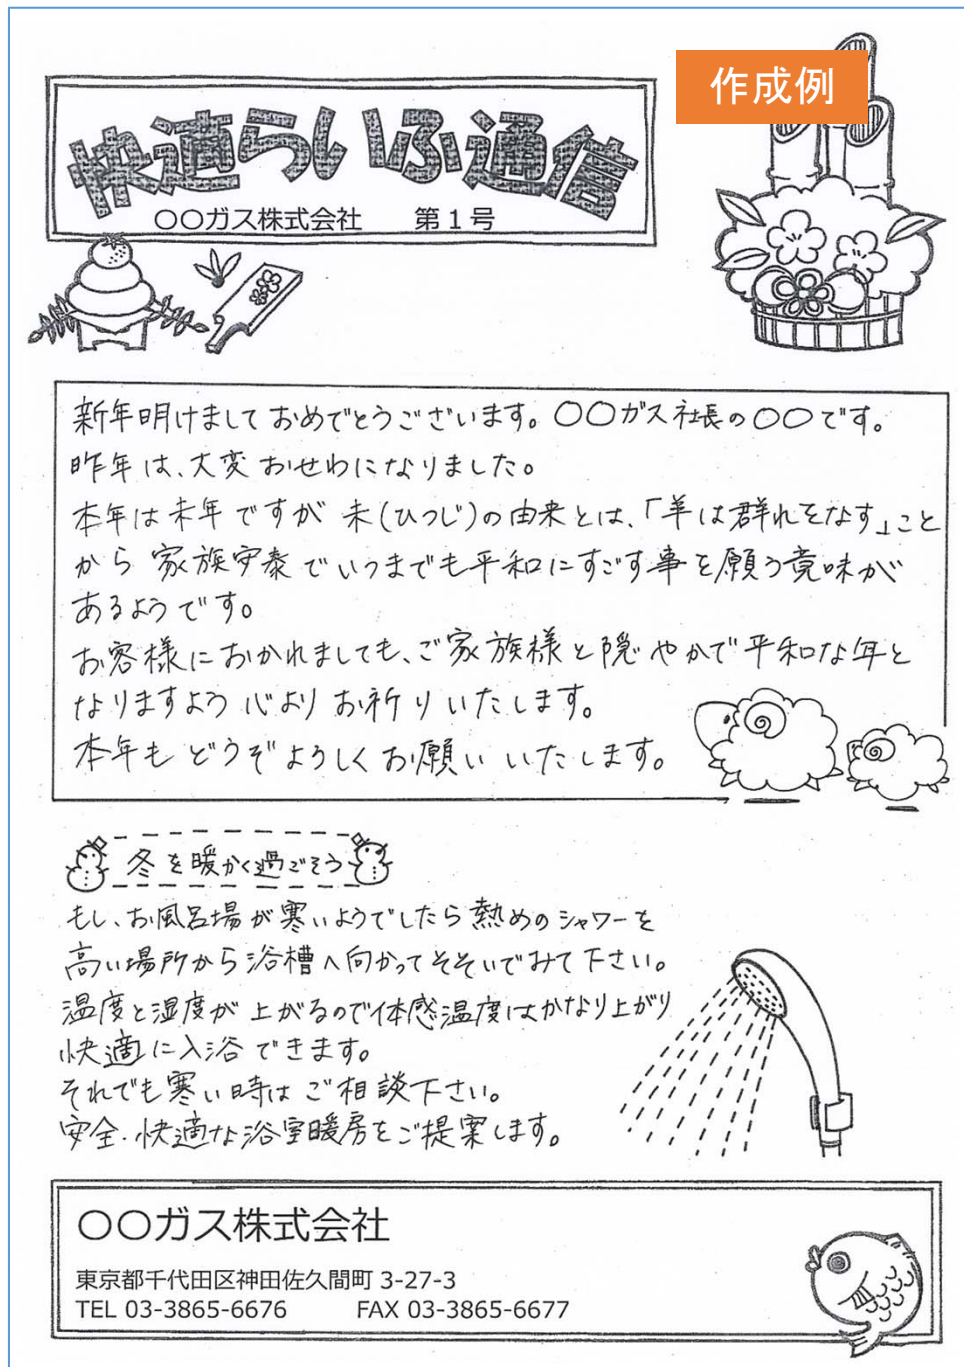 作成例
快適らいふ通信
〇〇ガス株式会社 第1号
新年明けまして おめでとうございます。〇〇ガス社長の〇〇です。
昨年は、大変 おせわになりました。
本年は未年ですが 未(ひつじ)の由来とは、「羊は群れをなす」こと
から 家族安泰でいつまでも平和にすごす事を願う意味が
あるようです。
お客様におかれましても、ご家族様と隠やかで平和な年と
なりますよう 心より お祈りいたします。
本年も どうぞよろしくお願い いたします。
冬を暖かく過ごそう
もし、お風呂場が寒いようでしたら熱めのシャワーを
高い場所から浴槽へ向かってそそいでみて下さい。
温度と湿度が上がるので体感温度はかなり上がり
快適に入浴できます。
それでも寒い時はご相談下さい。
安全・快適な浴室暖房をご提案します。
〇〇ガス株式会社
東京都千代田区神田佐久間町 3-27-3
TEL 03-3865-6676 FAX 03-3865-6677